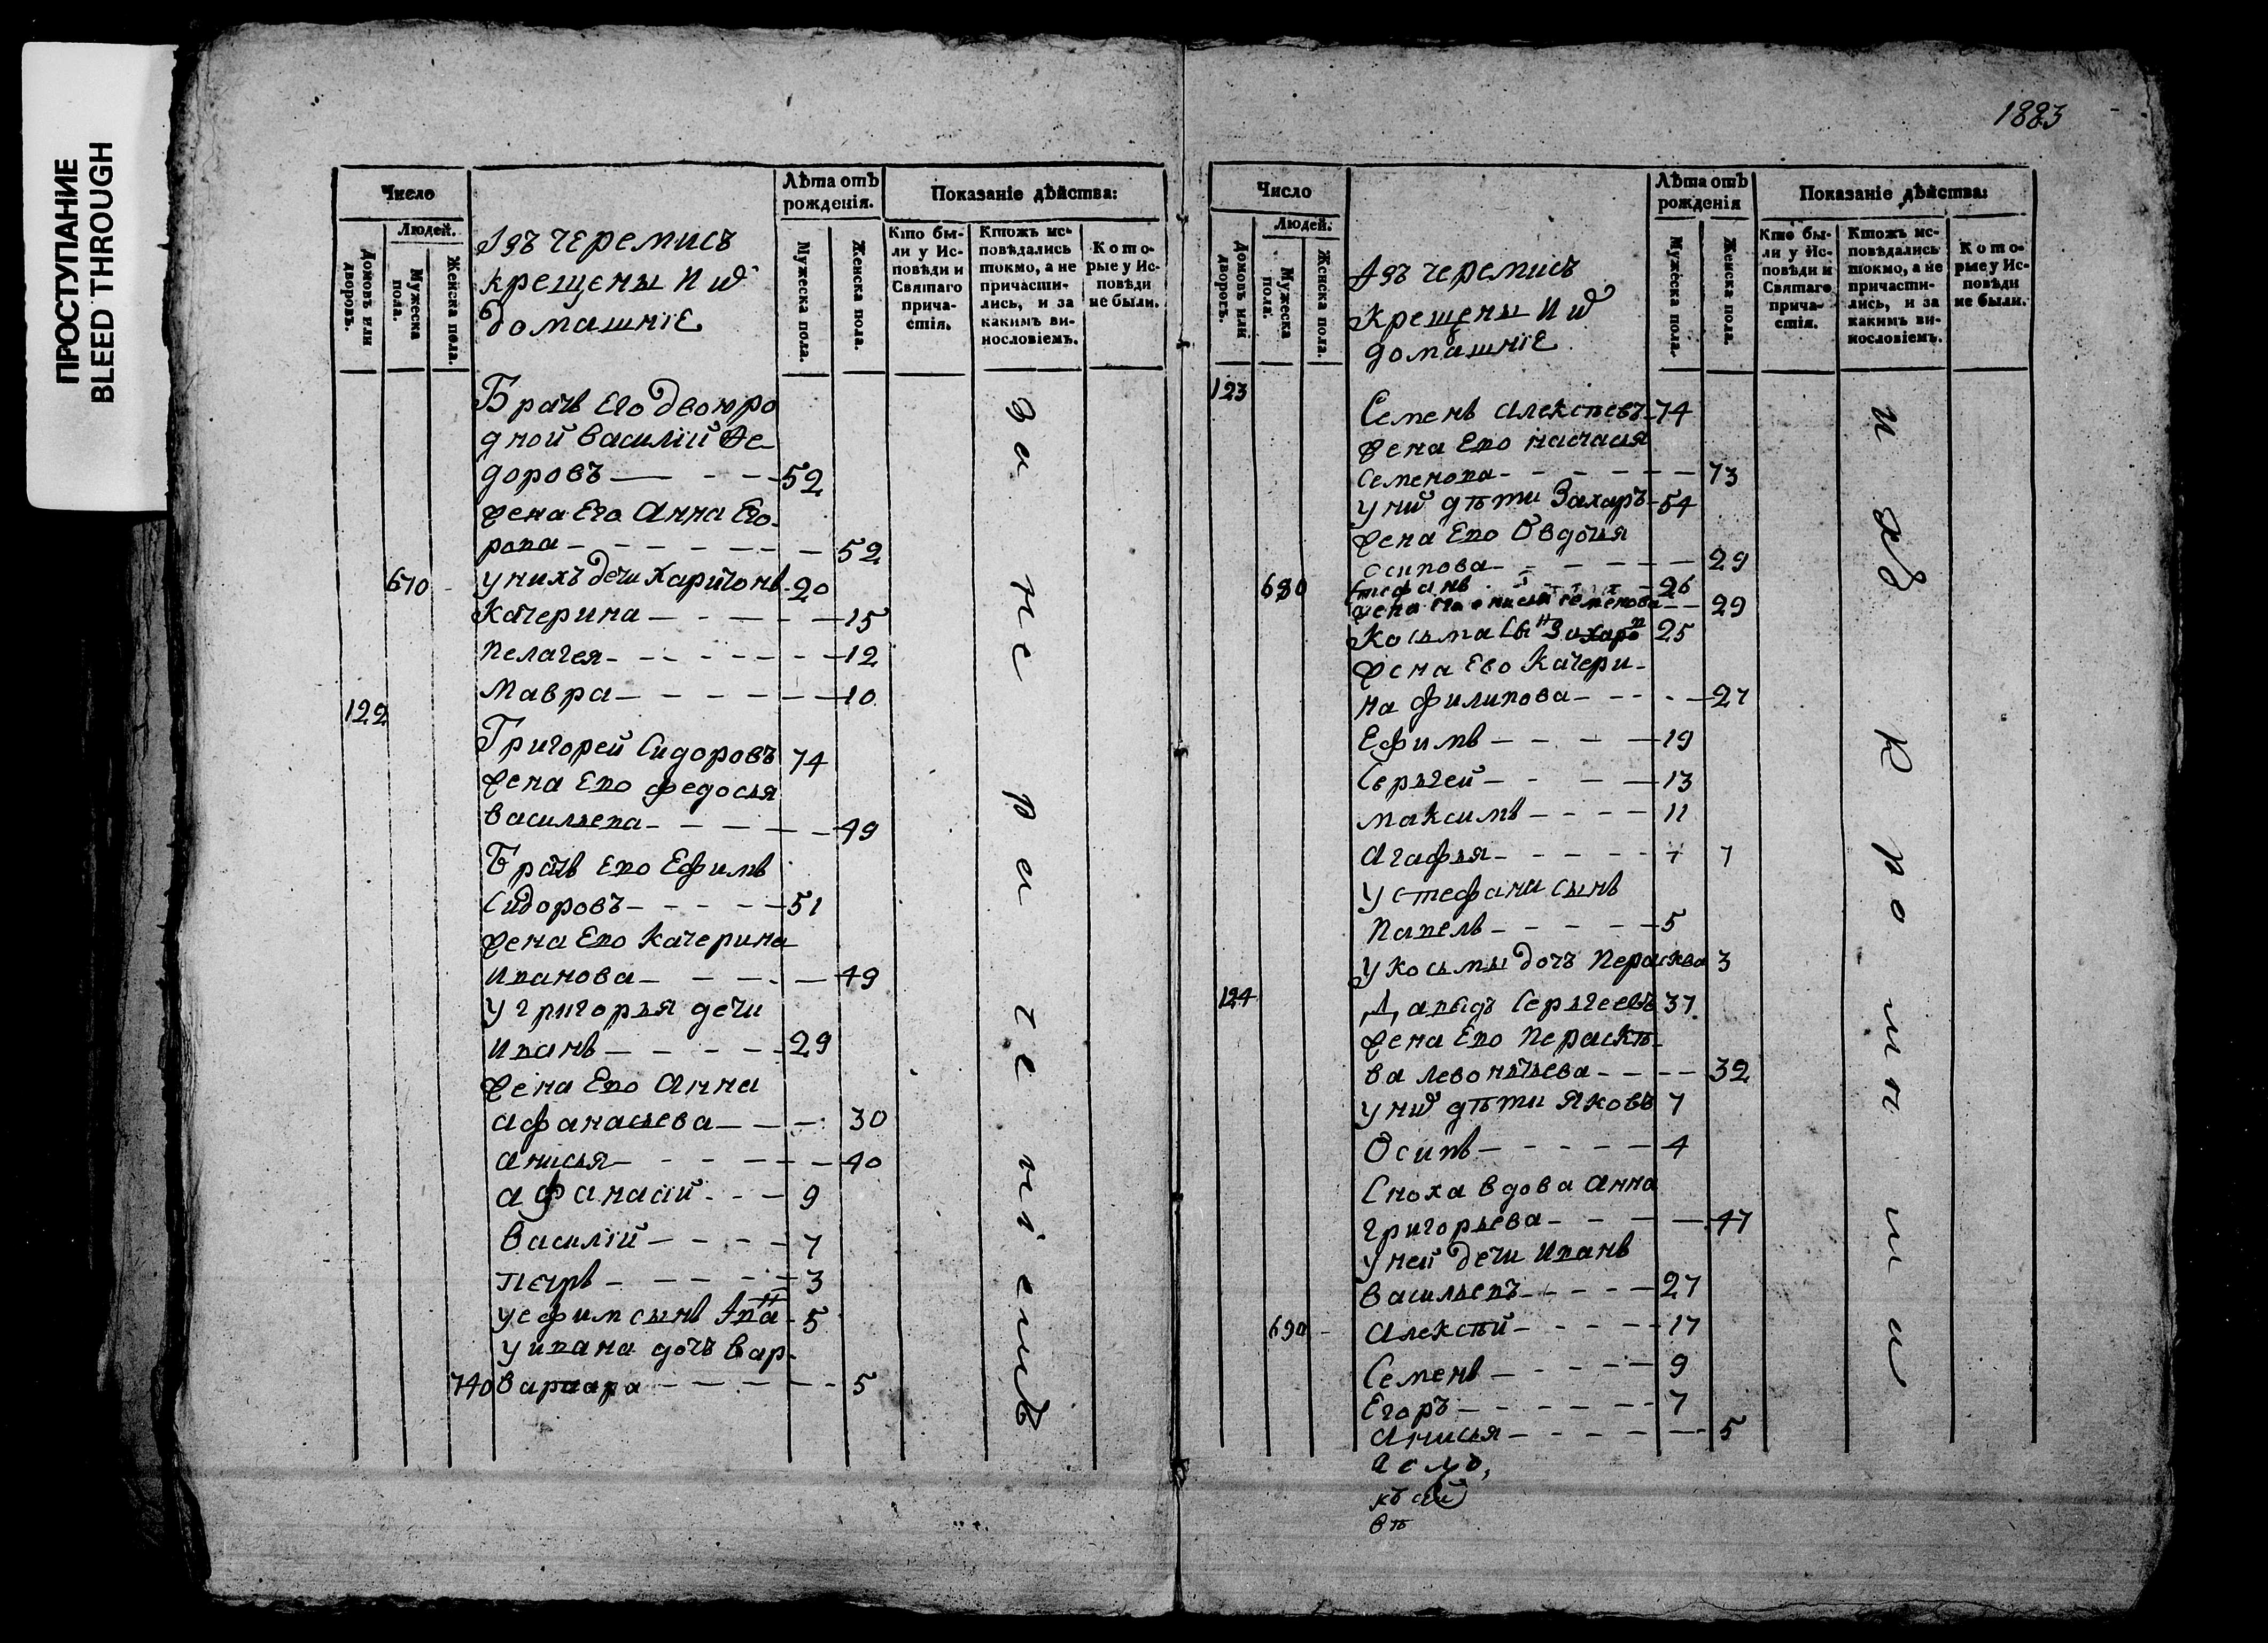 ПРОСТУПАНИЕ
BLEED THROUGH
Число
Людей.
Домовъ или дворовъ.
Мужеска пола.
Женска пола.
Изъ черемисъ
крещены и иˣ
домашнiе
Лѣта отъ рожденiя.
Мужеска пола.
Женска пола.
Показанiе дѣйства:
Кто бы-
ли у Ис-
повѣди и
Святаго
прича-
стiя.
Ктожъ ис-
повѣдались
токмо, а не
причасти-
лись, и за
какимъ ви-
нословiемъ.
Кото-
рые у Ис-
повѣди
не были.
Братъ Его двоюро
дной василiй Ѳе-
доровъ — 52
жена Его Анна Его-
рова — 52
670 у нихъ дети Харитонъ 20
Катерина — 15
Пелагея — 12
Мавра — 10
122
Григорей Сидоровъ 74
жена Ево федосья
васильева — 49
Братъ Ево Ефимъ
Сидоровъ — 51
жена Ево Катерина
Иванова — 49
у григорья дети
Иванъ — 29
жена Ево Анна
Афанасьева — 30
Анисья — 40
Афанасiй — 9
Василiй — 7
петръ — 3
у ефим сынъ 5
у ивана дочь вар-
740 варвара — 5
за не ра че нi емъ
1883
Число
Людей.
Домовъ или дворовъ.
Мужеска пола.
Женска пола.
Изъ черемисъ
крещены и иˣ
домашнiе
Лѣта отъ рожденiя
Мужеска пола.
Женска пола.
Показанiе дѣйства:
Кто бы-
ли у Ис-
повѣди и
Святаго
прича-
стiя.
Ктожъ ис-
повѣдались
токмо, а не
причасти-
лись, и за
какимъ ви-
нословiемъ.
Кото-
рые у Ис-
повѣди
не были.
123
Семенъ Алексѣевъ 74
жена Ево настася
Семенова — 73
у ниˣ дѣти Захаръ 54
жена Ево Овдотя
осипова — 29
680 Стефанъ — 26
жена его анисья семенова — 29
Косьма сынъ Захаров 25
жена Ево Катери-
на филипова — 27
Ефимъ — 19
Сергей — 13
Максимъ — 11
Агафья — 7 7
у стефана сынъ
Павелъ — 5
у косьмы дочь Парасква 3
124
Давыдъ Сергеевъ 37
жена Ево Пераскѣ-
ва левонтьева — 32
у ниˣ дѣти Яковъ 7
Осипъ — 4
Сноха вдова Анна
григорьева — 47
у ней дети Иванъ
васильевъ — 27
690 Алексѣй — 17
Семенъ — 9
Егоръ — 7
Анисья — 5
къ сей
вѣ